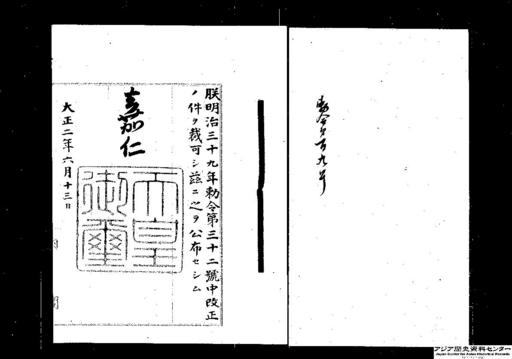 勅令第百九号
朕明治三十九年勅令第三十二號中改正
ノ件ヲ裁可シ茲ニ之ヲ公布セシム
嘉仁
天皇御璽
大正二年六月十三日
アジア歴史資料センター
Japan Center for Asian Historical Records